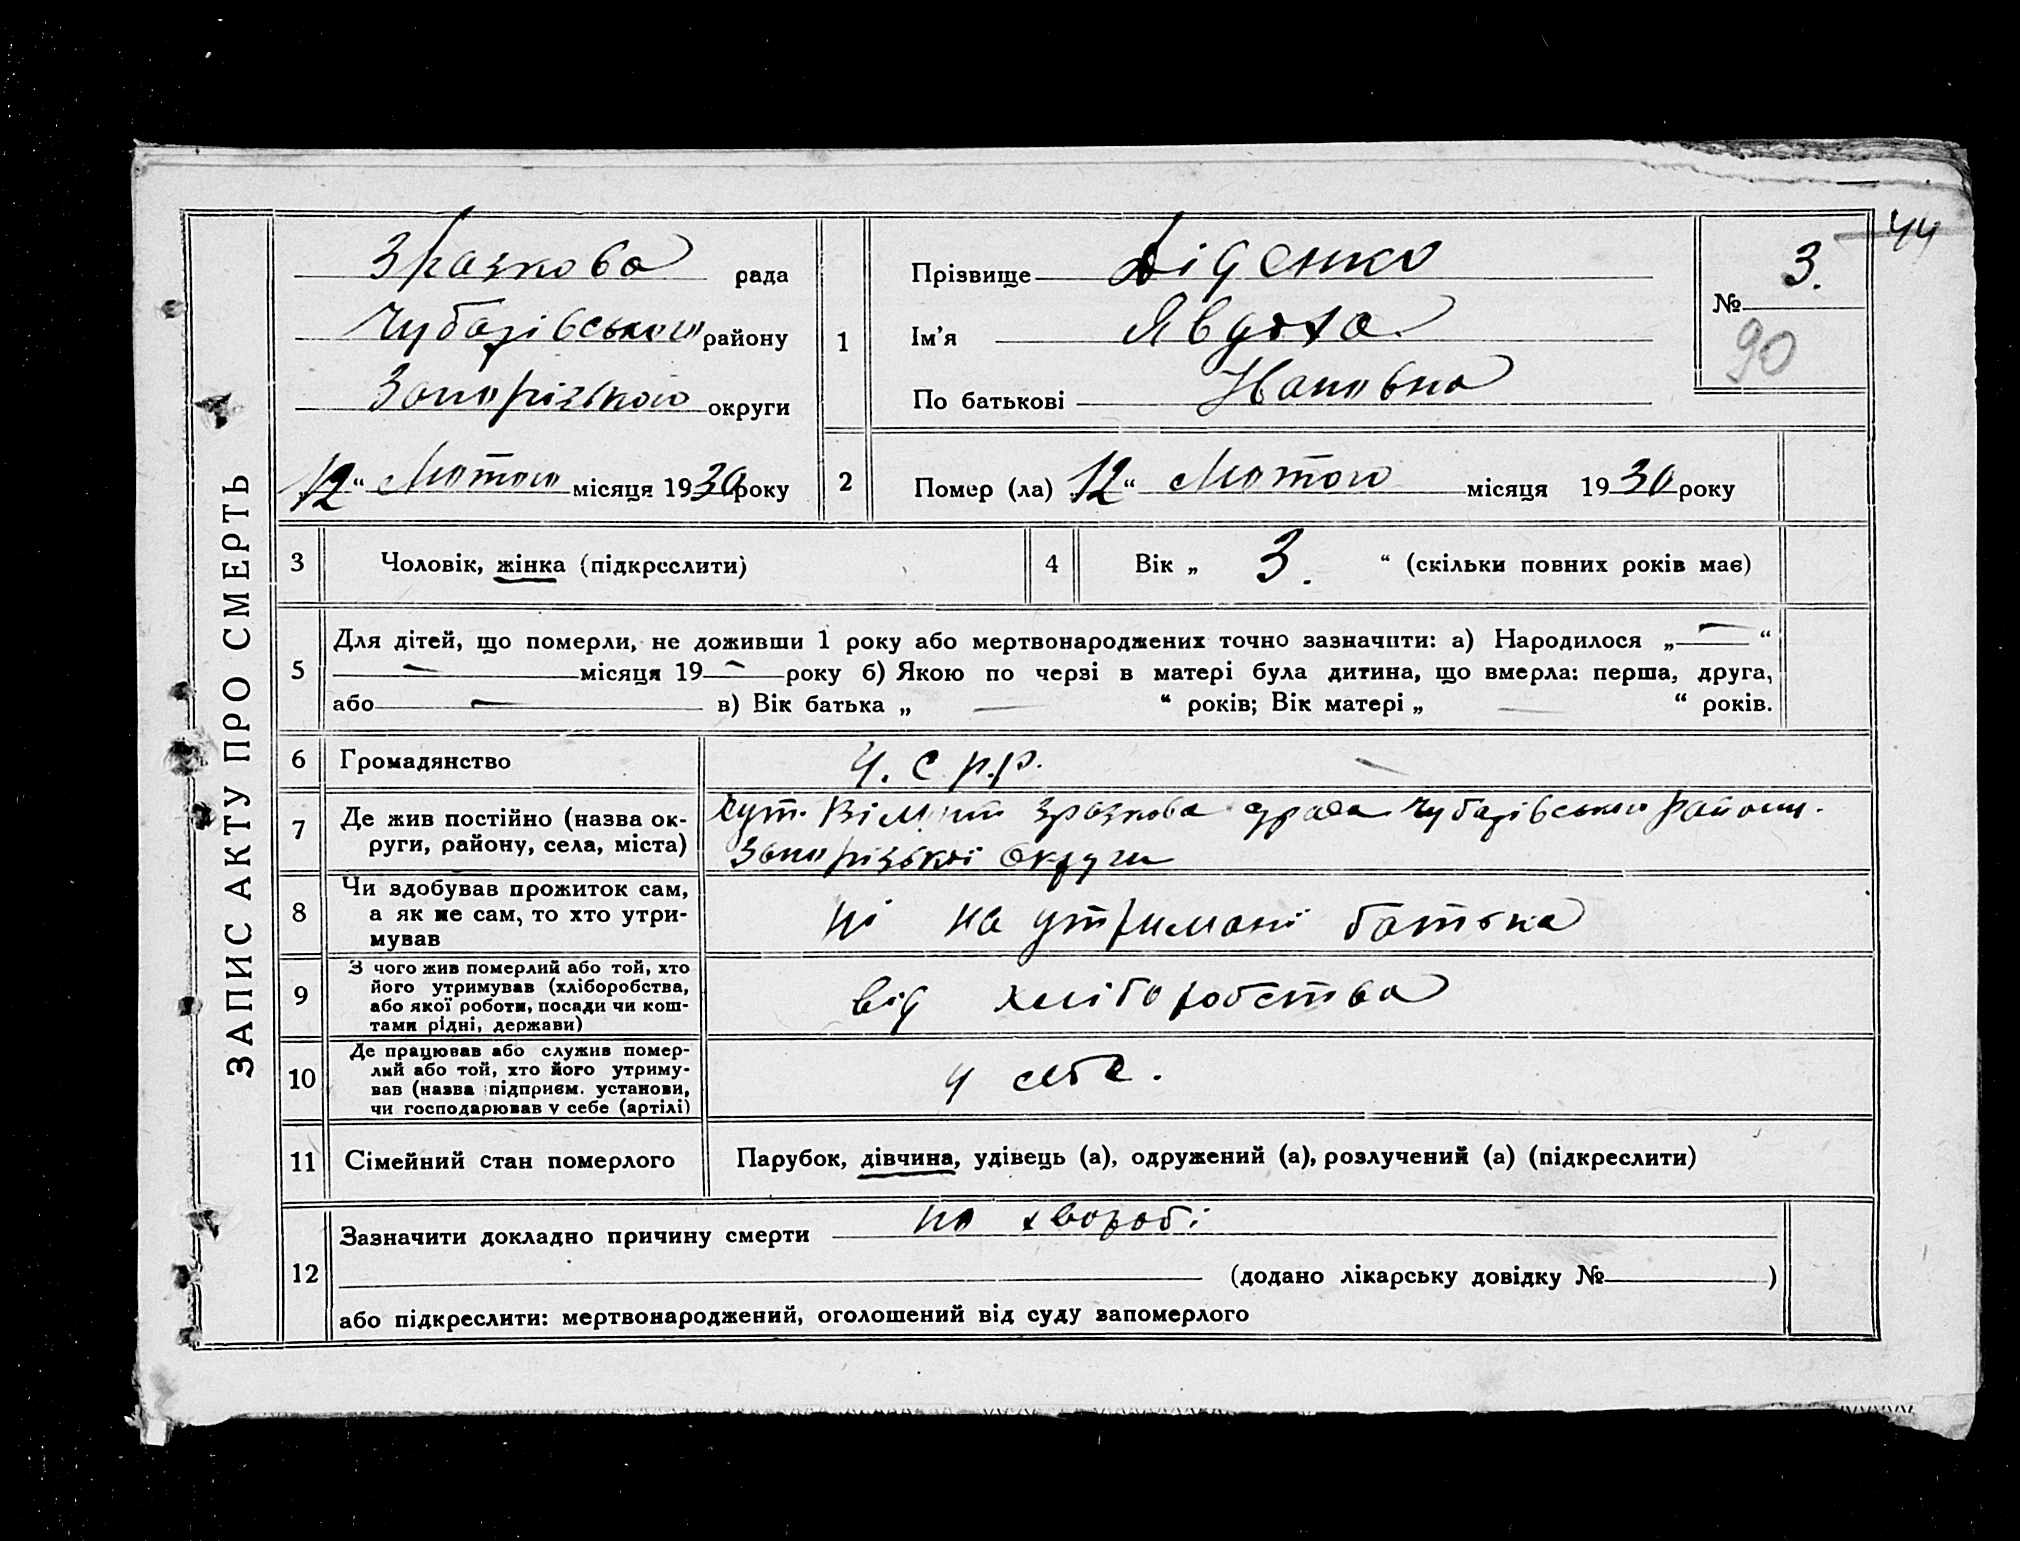 44
ЗАПИС АКТУ ПРО СМЕРТЬ
Зразкова рада
Чубарівського району
Запорізького округи
12 “ Лютого місяця 1930 року
1
Прізвище Діденко
Ім’я Явдоха
По батькові Івановна
№ 3.
90
2 Помер (ла) 12 “ Лютого місяця 1930 року
3 Чоловік, жінка (підкреслити)
4 Вік „ 3. “ (скільки повних років має)
5 Для дітей, що померли, не доживши 1 року або мертвонароджених точно зазначити: а) Народилося „ — “
— місяця 19 — року б) Якою по черзі в матері була дитина, що вмерла: перша, друга,
або — в) Вік батька „ — “ років; Вік матері „ — “ років.
6 Громадянство У. С. р. р.
7 Де жив постійно (назва ок-
руги, району, села, міста)
хут. Зразкова срада Чубарівського району.
Запорізької Округи
8 Чи здобував прожиток сам,
а як не сам, то хто утри-
мував
ні на утримані батька
9 З чого жив померлий або той, хто
його утримував (хліборобства,
або якої роботи, посади чи кош-
тами рідні, держави)
від хліборобства
10 Де працював або служив помер-
лий або той, хто його утриму-
вав (назва підприєм. установи,
чи господарював у себе (артілі)
у себе.
11 Сімейний стан померлого Парубок, дівчина, удівець (а), одружений (а), розлучений (а) (підкреслити)
12 Зазначити докладно причину смерти по хворобі
(додано лікарську довідку № )
або підкреслити: мертвонароджений, оголошений від суду запомерлого